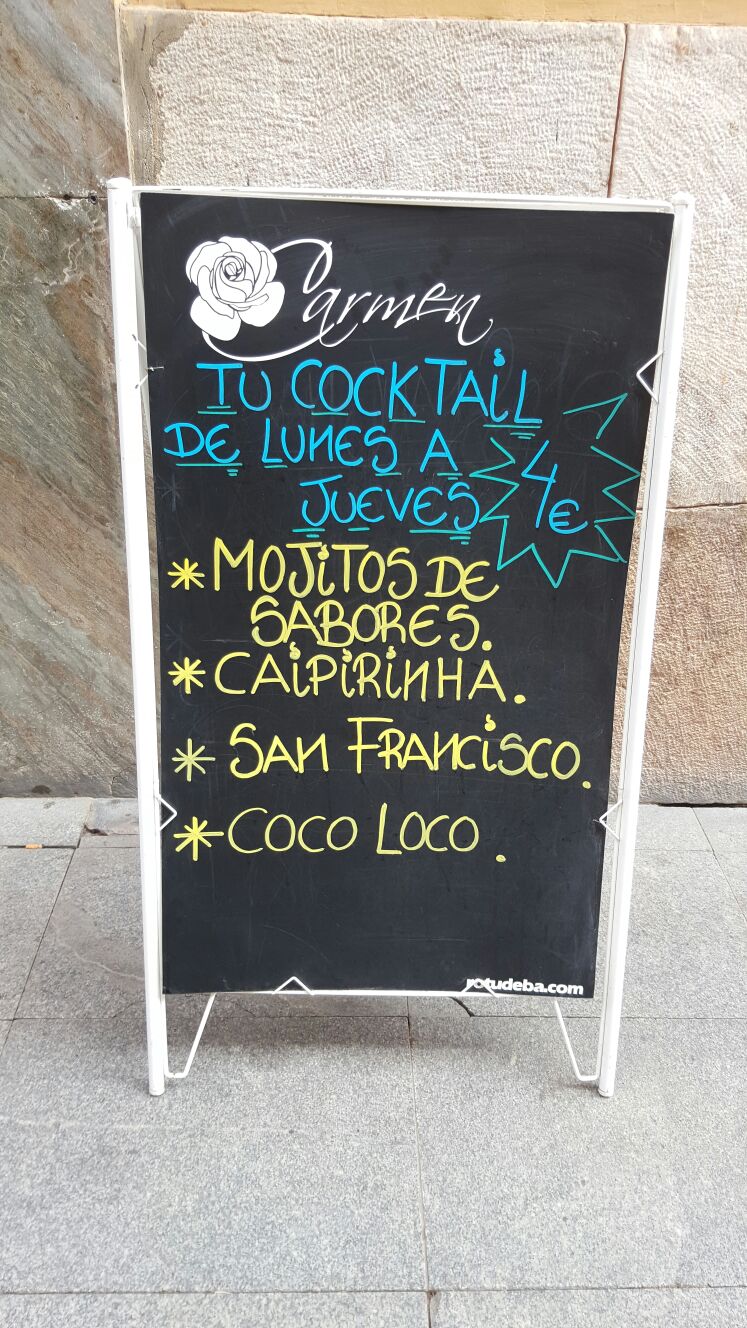 Carmen
TU COCKTAIL
DE LUNES A
JUEVES 4€
* MOJITOS DE
SABORES.
* CAIPIRINHA.
* SAN FRANCISCO.
* COCO LOCO.
rotudeba.com